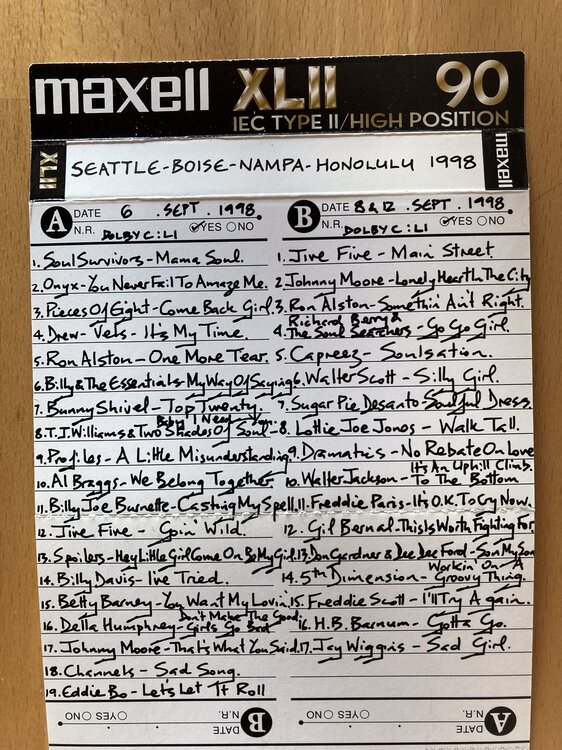 maxell XLII 90
IEC TYPE II/HIGH POSITION
XLII
SEATTLE-BOISE-NAMPA-HONOLULU 1998
maxell
A DATE 6 . SEPT . 1998
N.R. DOLBY C:LI YES NO
1. Soul Survivors - Mama Soul.
2. Onyx - You Never Fail To Amaze Me.
3. Pieces Of Eight - Come Back Girl.
4. Drew-Vels - It's My Time.
5. Ron Alston - One More Tear.
6. Billy & The Essentials - My Way Of Saying
7. Bunny Shivel - Top Twenty
Baby I Need You
8. T.J. Williams & Two Shades Of Soul -
9. Profiles - A Little Misunderstanding
10. Al Braggs - We Belong Together
11. Billy Joe Burnette - Casting My Spell.
12. Jive Five - Goin' Wild.
13. Spoilers - Hey Little Girl Come On Be My Girl.
14. Billy Davis - I've Tried.
15. Betty Barney - You Want My Lovin'
Don't Make The Good
16. Della Humphrey - Girls Go Bad
17. Johnny Moore - That's What You Said.
18. Channels - Sad Song.
19. Eddie Bo - Let's Let It Roll
B DATE 8 & 12 . SEPT . 1998
N.R. DOLBY C:LI YES NO
1. Jive Five - Main Street.
2. Johnny Moore - Lonely Heart In The City
3. Ron Alston - Somethin' Ain't Right.
Richard Berry &
4. The Soul Searchers - Go Go Girl.
5. Capreez - Soulsation.
6. Walter Scott - Silly Girl.
7. Sugar Pie Desanto Soulful Dress.
8. Lottie Joe Jones - Walk Tall.
9. Dramatics - No Rebate On Love
It's An Uphill Climb
10. Walter Jackson - To The Bottom
11. Freddie Paris - It's O.K. To Cry Now.
12. Gil Bernal - This Is Worth Fighting For
13. Don Gardner & Dee Dee Ford - Son My Son
Workin' On A
14. 5th Dimension - Groovy Thing.
15. Freddie Scott - I'll Try Again.
16. H.B. Barnum - Gotta Go.
17. Jay Wiggins - Sad Girl.
B DATE
N.R. YES NO
A DATE
N.R. YES NO